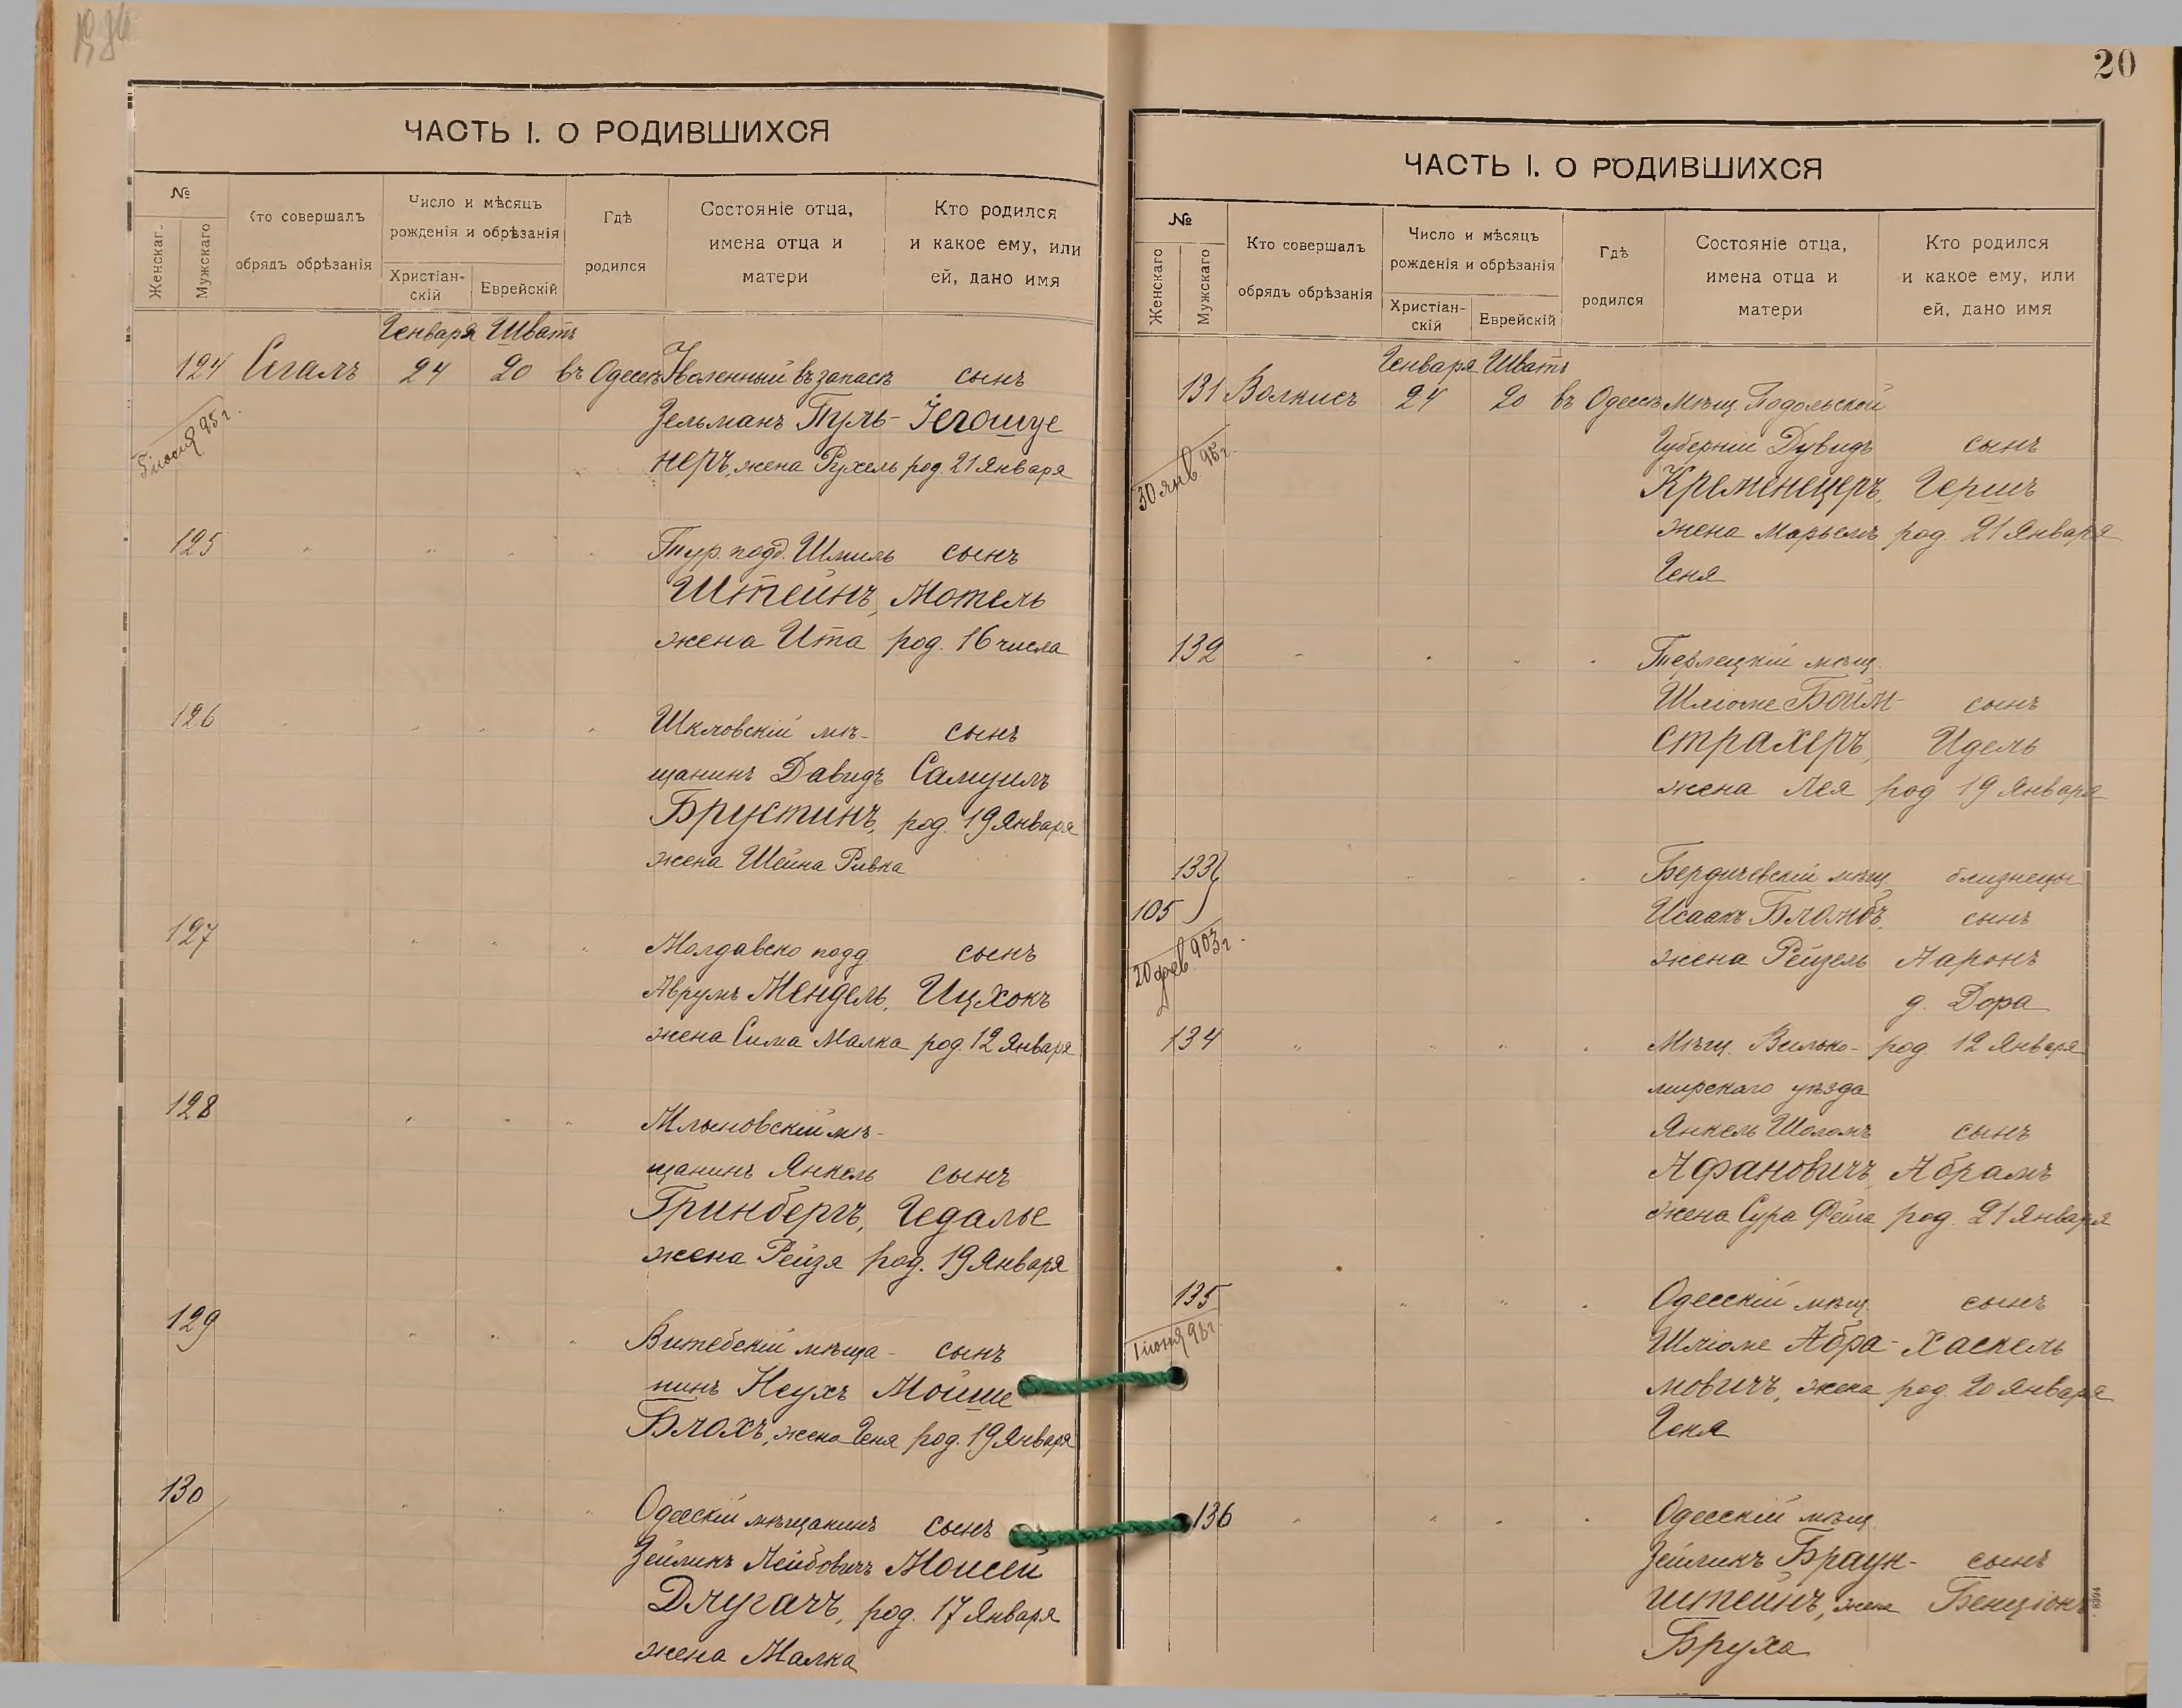 20
ЧАСТЬ I. О РОДИВШИХСЯ
№
Женскаг.
Мужскаго
Кто совершалъ
обрядъ обрѣзанія
Число и мѣсяцъ
рожденія и обрѣзанія
Христіан-
скій
Еврейскій
Гдѣ
родился
Состояніе отца,
имена отца и
матери
Кто родился
и какое ему, или
ей, дано имя
Генваря Шватъ
124 Сегалъ 24 20 въ Одессѣ Уволенный въ запасъ сынъ
Зельманъ Пуль- Іегошуе
неръ, жена Рухель род. 21 Января
125 " " " " Тур. подд. Шмиль сынъ
Штейнъ, Мотель
жена Ита род. 16 числа
126 " " " " Шкловскій мѣ- сынъ
щанинъ Давидъ Самуилъ
Брустинъ, род. 19 Января
жена Шейна Ривка
127 " " " Молдавско подд сынъ
Аврумъ Мендель, Ицхокъ
жена Сима Малка род. 12 Января
128 " " " Млыновскій мѣ-
щанинъ Янкель сынъ
Гринбергъ, Гедалье
жена Рейзя род. 19 Января
129 " " " Витебскій мѣща- сынъ
нинъ Неухъ Мойше
Блохъ, жена Геня род. 19 Января
130 " " " Одесскій мѣщанинъ сынъ
Зейликъ Лейбовичъ Моисей
Длугачъ, род. 17 Января
жена Малка
ЧАСТЬ I. О РОДИВШИХСЯ
№
Женскаго
Мужскаго
Кто совершалъ
обрядъ обрѣзанія
Число и мѣсяцъ
рожденія и обрѣзанія
Христіан-
скій
Еврейскій
Гдѣ
родился
Состояніе отца,
имена отца и
матери
Кто родился
и какое ему, или
ей, дано имя
Генваря Шватъ
131 Волкисъ 24 20 въ Одессѣ Мѣщ. Подольской
Губерніи Дувидъ сынъ
30 янв. 95 г.
Кременецеръ, Гершъ
жена Марьемъ род. 21 Января
Геня
132 " " " " мѣщ.
Шліоме Бойм- сынъ
страхеръ, Идель
жена Лея род 19 Января
133 " " " Бердичевскій мѣщ. близнецы
105 Исаакъ сынъ
20 фев. 903 г.
жена Рейзель Ааронъ
д. Дора
134 " " " " Мѣщ. Вилько- род. 12 Января
мирскаго уѣзда
Янкель Шоломъ сынъ
Афановичъ, Абрамъ
жена Сура Фейга род. 21 Января
135 " " " Одесскій мѣщ. сынъ
1 іюня 98 г.
Шліоме Абра- Хаскель
мовичъ, жена род. 20 Января
Геня
136 " " " " Одесскій мѣщ.
Зейликъ Браун- сынъ
штейнъ, жена Бенціонъ
Бруха